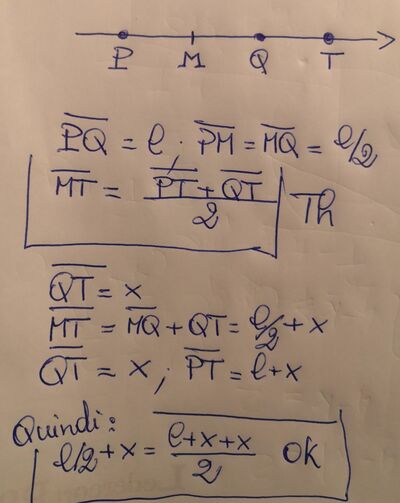 P M Q T
P̅Q̅ = l ; P̅M̅ = M̅Q̅ = l/2
M̅T̅ = (P̅T̅ + Q̅T̅)/2 Th
Q̅T̅ = x
M̅T̅ = M̅Q̅ + QT = l/2 + x
Q̅T̅ = x ; P̅T̅ = l+x
Quindi:
l/2 + x = (l+x+x)/2 ok